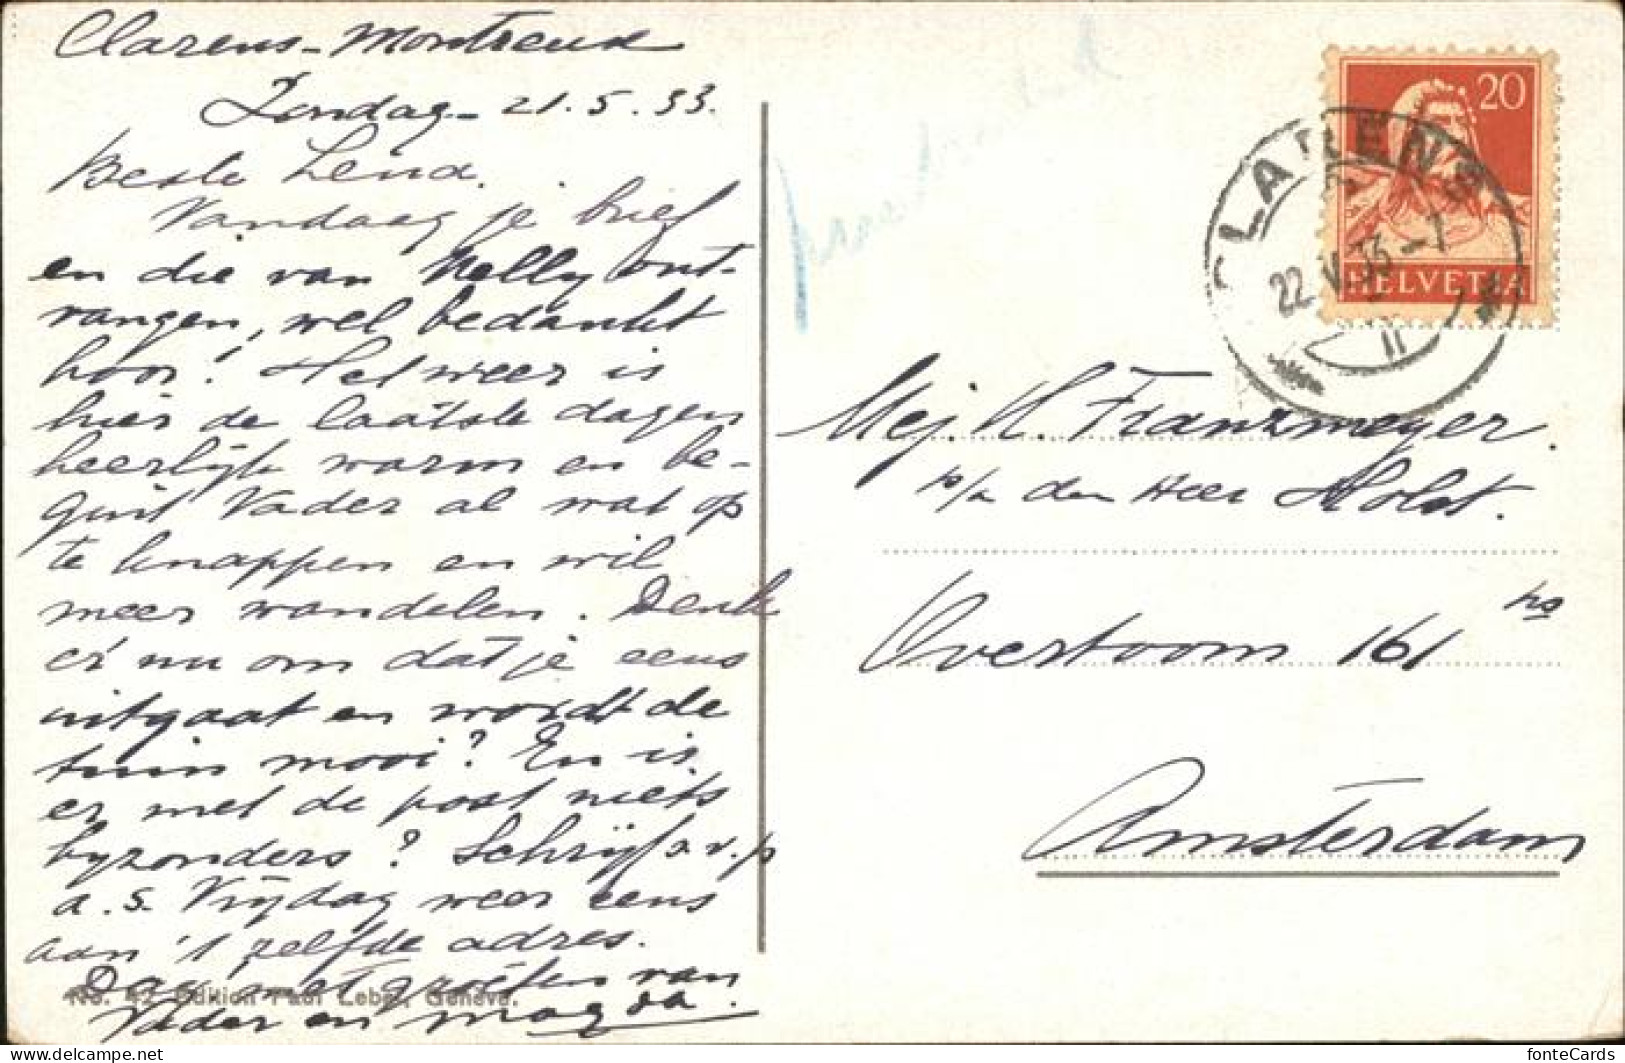 Clarens-Montreux
Zondag - 21.5.33.
Beste Lena.
Vandaag je brief
en die van Nelly ont-
vangen, wel bedankt
hoor! Het weer is
hier de laatste dagen
heerlijk warm en be-
gint Vader al wat op
te knappen en wil
meer wandelen. Denk
er nu om dat je eens
uitgaat en wordt de
tuin mooi? En is
er met de post niets
byzonders? Schrijf s.v.p
a.s. Vrijdag weer eens
aan 't zelfde adres.
Dag, met groeten van
Vader en Magda.
No. 42 Edition Paul Lebet, Genève.
20
HELVETIA
CLARENS
22.V.33-7
Mej. H. Franzmeyer.
p/a den Heer Holst.
Overtoom 161 hs
Amsterdam
the best marketplace for collectors
fonteCards